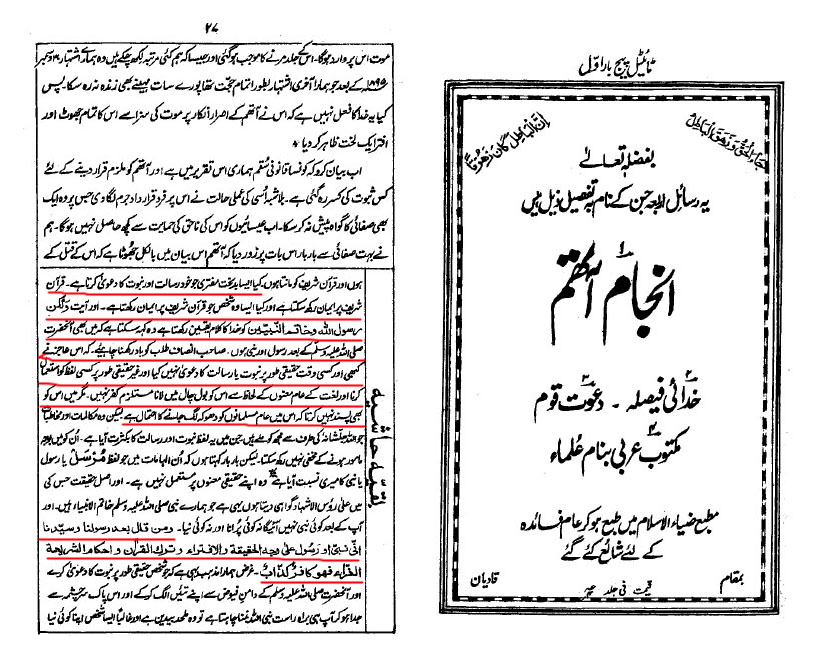 ٹائیٹل پیج بار اوّل
جَاءَ الْحَقُّ وَزَهَقَ الْبَاطِلُ
اِنَّ الْبَاطِلَ كَانَ زَهُوْقًا
بفضلہ تعالےٰ
یہ رسائل اربعہ جن کے نام بہ تفصیل ذیل ہیں
۱
انجام آتھم
۲ ۳
خدائی فیصلہ ۔ دعوت قوم
۴
مکتوب عربی بنام علماء
مطبع ضیاء الاسلام میں طبع ہو کر عام فائدہ
کے لئے شائع کئے گئے
بمقام
قادیان
قیمت فی جلد
۲۷
موت اس پر وارد ہوگا۔ اس کے جلد مرنے کا موجب ہوگئی اور جیسا کہ ہم کئی مرتبہ لکھ چکے ہیں وہ ہمارے اشتہار ۳۰ دسمبر
۱۸۹۵ء کے بعد جو ہمارا آخری اشتہار بطور اتمام حجت تھا پورے سات مہینے بھی زندہ نہ رہ سکا۔ پس
کیا یہ خدا کا فعل نہیں ہے کہ اس نے آتھم کے اصرار انکار پر موت کی سزا سے اس کا تمام جھوٹ اور
افترا یک لخت ظاہر کر دیا
اب بیان کرو کہ کونسا قانونی سُقم ہماری اس تقریر میں ہے اور آتھم کو ملزم قرار دینے کے لئے
کس ثبوت کی کسر رہ گئی ہے۔ بلاشبہ اُسی کی عملی حالت نے اس پر فرد قرارداد جرم لگا دی جس پر وہ ایک
بھی صفائی کا گواہ پیش نہ کر سکا۔ اب عیسائیوں کو اس کی ناحق کی حمایت سے کچھ حاصل نہیں ہوگا۔ ہم
نے بہت صفائی سے بار بار اس بات پر زور دیا کہ آتھم اس بیان میں بالکل جھوٹا ہے کہ اس کے قتل کے
بقیہ حاشیہ
ہوں اور قرآن شریف کو مانتا ہوں۔ کیا ایسا بدبخت مفتری جو خود رسالت اور نبوت کا دعویٰ کرتا ہے۔ قرآن
شریف پر ایمان رکھ سکتا ہے اور کیا ایسا وہ شخص جو قرآن شریف پر ایمان رکھتا ہے۔ اور آیت ولٰکن
رسول اللہ وخاتم النّبیّین کو خدا کا کلام یقین رکھتا ہے وہ کہہ سکتا ہے کہ میں بھی آنحضرت
صلی اللہ علیہ وسلم کے بعد رسول اور نبی ہوں۔ صاحب انصاف طلب کو یاد رکھنا چاہیئے۔ کہ اس عاجز نے
کبھی اور کسی وقت حقیقی طور پر نبوت یا رسالت کا دعویٰ نہیں کیا اور غیر حقیقی طور پر کسی لفظ کو استعمال
کرنا اور لغت کے عام معنوں کے لحاظ سے اس کو بول چال میں لانا مستلزم کفر نہیں۔ مگر میں اس کو
بھی پسند نہیں کرتا کہ اس میں عام مسلمانوں کو دھوکہ لگ جانے کا احتمال ہے لیکن وہ مکالمات اور مخاطبات
جو اللہ جلّشانہ کی طرف سے مجھ کو ملے ہیں جن میں یہ لفظ نبوت اور رسالت کا بکثرت آیا ہے۔ ان کو میں بوجہ
مامور ہونے کے مخفی نہیں رکھ سکتا۔ لیکن بار بار کہتا ہوں کہ ان الہامات میں جو لفظ مُرْسَل یا رسول
یا نبی کا میری نسبت آیا ہے وہ اپنے حقیقی معنوں پر مستعمل نہیں ہے۔ اور اصل حقیقت جس کی
میں علیٰ رؤس الاشہاد گواہی دیتا ہوں یہی ہے جو ہمارے نبی صلی اللہ علیہ وسلم خاتم الانبیاء ہیں۔ اور
آپ کے بعد کوئی نبی نہیں آئیگا نہ کوئی پُرانا اور نہ کوئی نیا۔ ومن قال بعد رسولنا وسیّدنا
انّی نبیّ او رسول علیٰ وجہ الحقیقۃ والافتراء وترك القراٰن واحکام الشریعۃ
الغرّاء فھو کافر کذّاب۔ غرض ہمارا مذہب یہی ہے کہ جو شخص حقیقی طور پر نبوت کا دعویٰ کرے
اور آنحضرت صلی اللہ علیہ وسلم کے دامن فیوض سے اپنے تئیں الگ کر کے اور اس پاک سرچشمہ سے
جدا ہو کر آپ ہی براہ راست نبی اللہ بننا چاہتا ہے تو وہ ملحد بیدین ہے اور غالباً ایسا شخص اپنا کوئی نیا